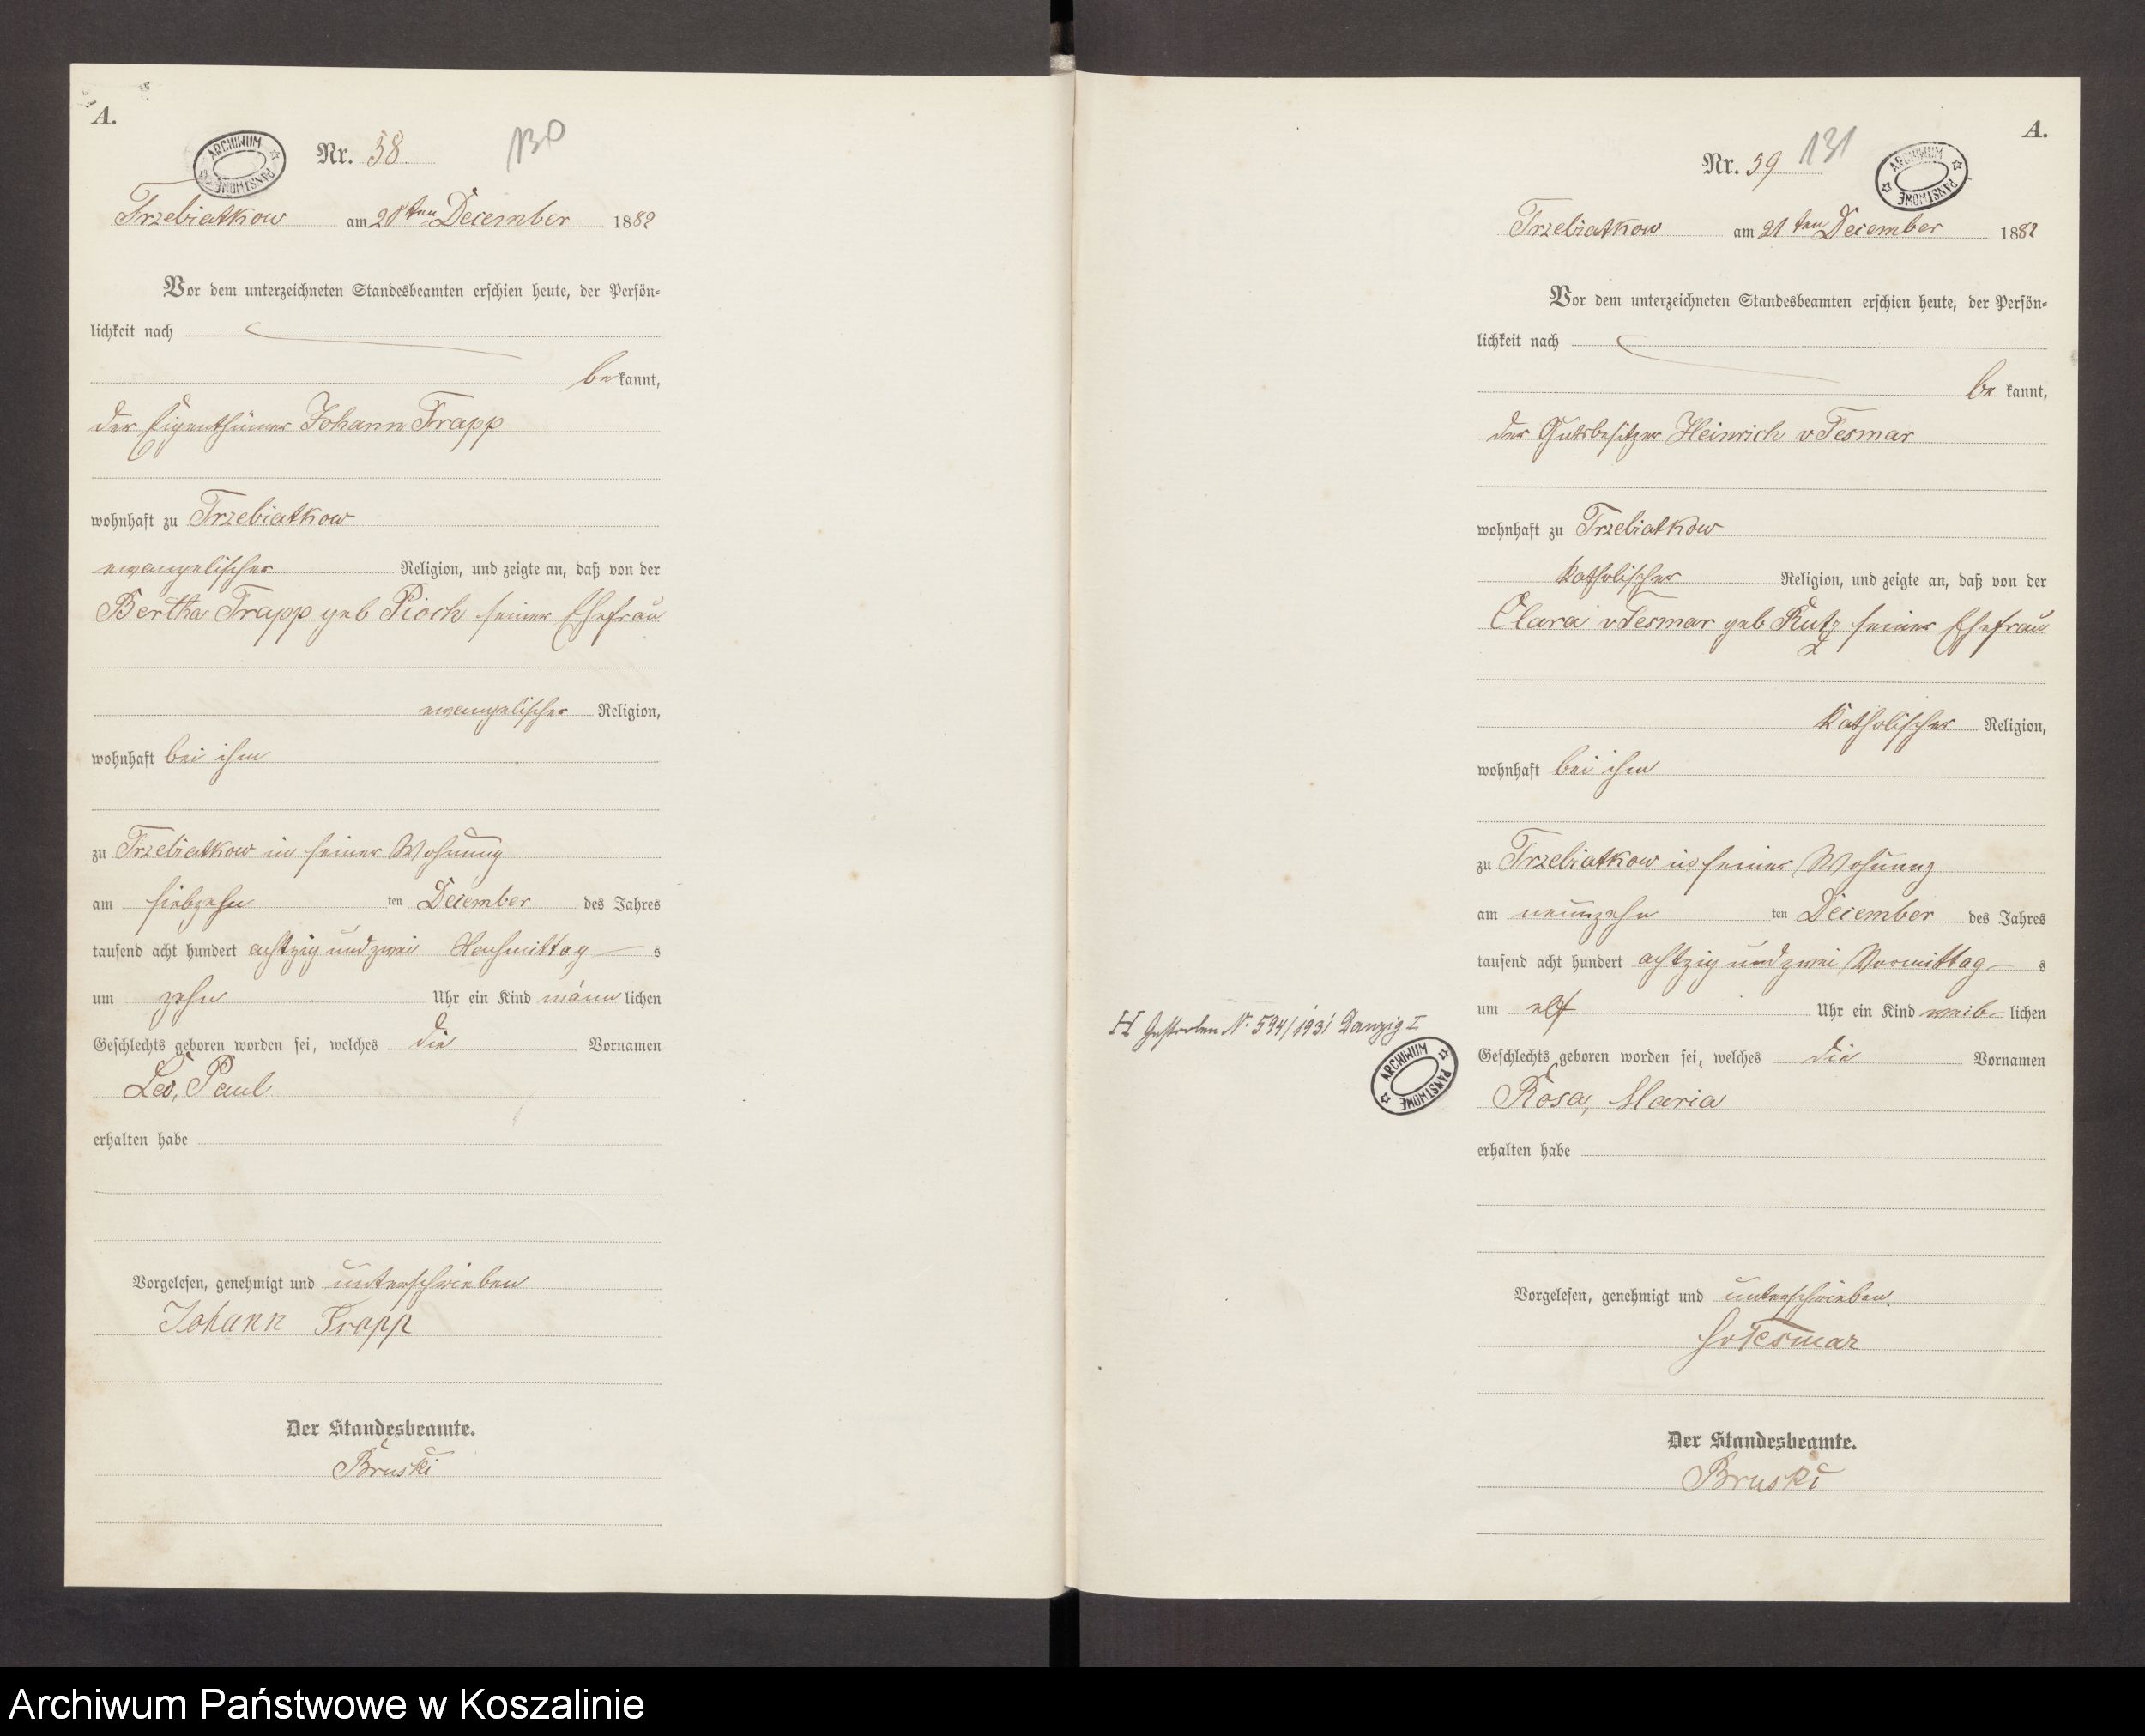 A.
ARCHIWUM PAŃSTWOWE
Nr. 58
130
Trzebiatkow am 20ten December 1882
Vor dem unterzeichneten Standesbeamten erschien heute, der Persön-
lichkeit nach
bekannt,
der Eigenthümer Johann Trapp
wohnhaft zu Trzebiatkow
evangelischer Religion, und zeigte an, daß von der
Bertha Trapp geb Pioch seiner Ehefrau
evangelischer Religion,
wohnhaft bei ihm
zu Trzebiatkow in seiner Wohnung
am siebzehn ten December des Jahres
tausend acht hundert achtzig und zwei Nachmittag s
um zehn Uhr ein Kind männlichen
Geschlechts geboren worden sei, welches die Vornamen
Leo, Paul
erhalten habe
Vorgelesen, genehmigt und unterschrieben
Johann Trapp
Der Standesbeamte.
Bruski
A.
Nr. 59
131
ARCHIWUM PAŃSTWOWE
Trzebiatkow am 21ten December 1882
Vor dem unterzeichneten Standesbeamten erschien heute, der Persön-
lichkeit nach
bekannt,
der Gutsbesitzer Heinrich v Tesmar
wohnhaft zu Trzebiatkow
katholischer Religion, und zeigte an, daß von der
Clara v Tesmar geb Kutz seiner Ehefrau
katholischer Religion,
wohnhaft bei ihm
zu Trzebiatkow in seiner Wohnung
am neunzehn ten December des Jahres
tausend acht hundert achtzig und zwei Vormittag s
um elf Uhr ein Kind weiblichen
Geschlechts geboren worden sei, welches die Vornamen
Rosa, Maria
erhalten habe
Vorgelesen, genehmigt und unterschrieben.
HvTesmar
Der Standesbeamte.
Bruski
H Gestorben N. 594/1931 Danzig I
ARCHIWUM PAŃSTWOWE
Archiwum Państwowe w Koszalinie